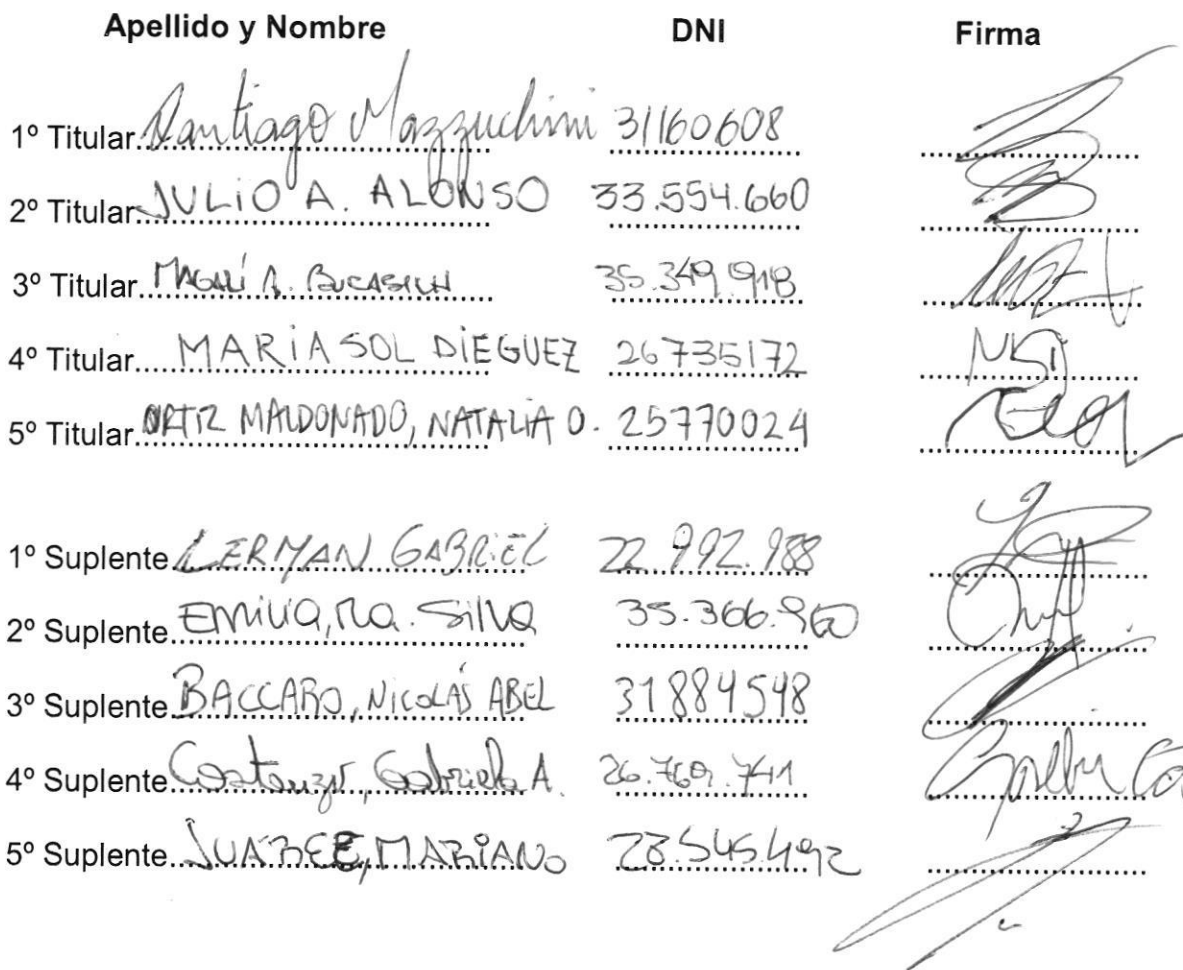 Apellido y Nombre DNI Firma
1º Titular Santiago Mazzuchini 31160608
2º Titular JULIO A. ALONSO 33.554.660
3º Titular MAGALÍ A. BUCASICH 35.349.918
4º Titular MARIA SOL DIEGUEZ 26735172 MSD
5º Titular ORTIZ MALDONADO, NATALIA O. 25770024
1º Suplente LERMAN GABRIEL 22.992.988
2º Suplente EMILIA, Ma. Silva 35.366.960
3º Suplente BACCARO, NICOLÁS ABEL 31884548
4º Suplente Costanzo, Gabriela A. 26.769.741
5º Suplente JUÁREZ, MARIANO 28.545.492